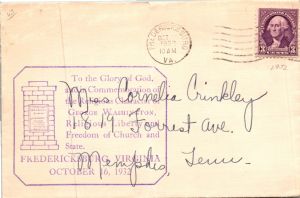 FREDERICKSBURG
OCT
1932
10 AM
VA.
3
To the Glory of God,
and in Commemoration of
the Religious
GEORGE WASHINGTON,
Religious Liberty and
Freedom of Church and
State.
FREDERICKSBURG, VIRGINIA
OCTOBER 16, 1932
Mrs Cornelia Crinkley
Forrest Ave.
Memphis,
Tenn.